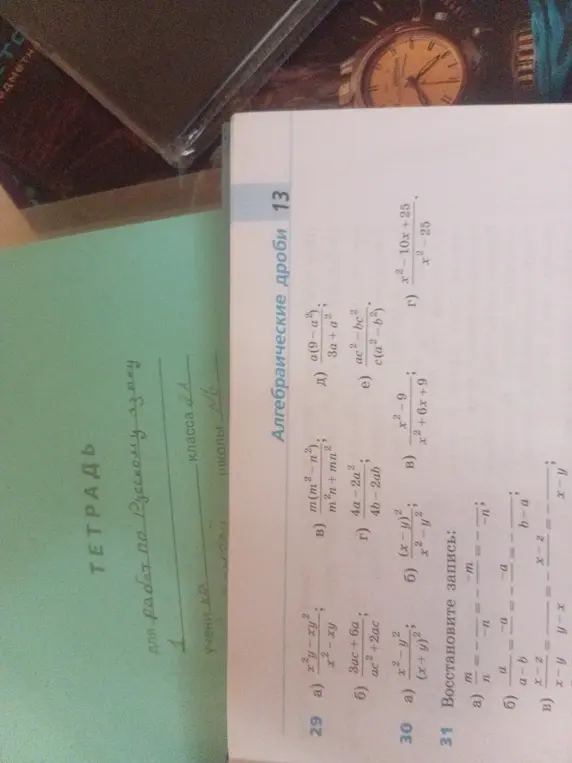 ТЕТРАДЬ
для работ по Русскому языку
1
класса 8А
школы №6
Алгебраические дроби 13
29 а) (x²y − xy²)/(x² − xy); в) m(m² − n²)/(m²n + mn²); д) a(9 − a²)/(3a + a²);
б) (3ac + 6a)/(ac² + 2ac); г) (4a − 2a²)/(4b − 2ab); е) (ac² − bc²)/(c(a² − b²)).
30 а) (x² − y²)/(x + y)²; б) (x − y)²/(x² − y²); в) (x² − 9)/(x² + 6x + 9); г) (x² − 10x + 25)/(x² − 25).
31 Восстановите запись:
а) m/n = − /−n = − −m/ = − /−n;
б) a/(a − b) = −a/ = − −a/ = − /(b − a);
в) (x − 2)/(x − y) = /(y − x) = − (x − 2)/ = − /(x − y);